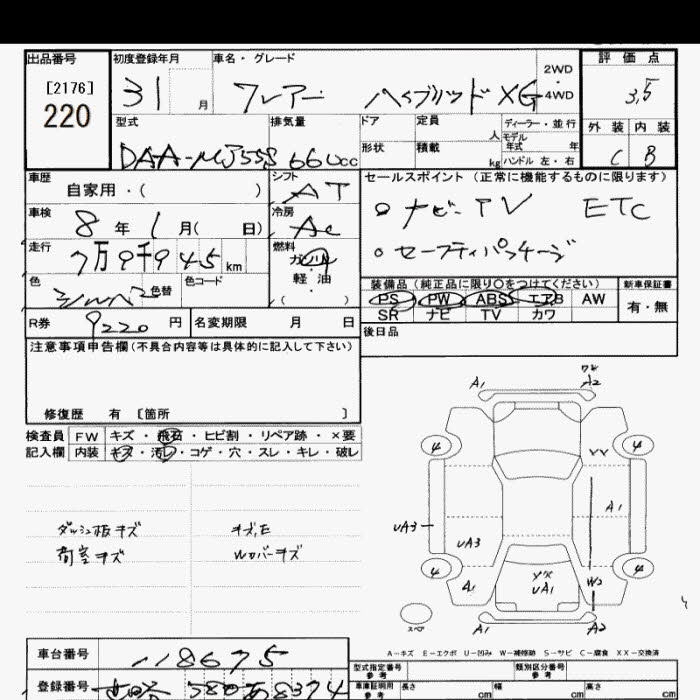 出品番号
[2176]
220
初度登録年月
31 月
車名・グレード
フレアー ハイブリッド XG
2WD
・
4WD
評価点
3,5
外装 内装
C B
型式
DAA-MJ55S
排気量
660cc
ドア
形状
定員
人
積載
kg
ディーラー・並行
モデル
年式 年
ハンドル 左・右
車歴
自家用・( )
シフト
AT
車検
8年 1月( 日)
冷房
AC
走行
7万9千945km
燃料
ガソリン
・
軽油
・
( )
色
シルバー
色替
色コード
R券
9220円
名変期限 月 日
セールスポイント (正常に機能するものに限ります)
ナビ-TV ETC
セーフティパッケージ
装備品 (純正品に限り○をつけてください)
新車保証書
PS PW ABS エアB AW
有・無
SR ナビ TV カワ
後日品
注意事項申告欄(不具合内容等は具体的に記入して下さい)
修復歴 有 [箇所 ]
検査員 FW キズ・飛石・ヒビ割・リペア跡・×要
記入欄 内装 キズ・汚レ・コゲ・穴・スレ・キレ・破レ
ダッシュ板キズ
荷室キズ
キズ,E
Wカバーキズ
A1
A2
4
4
A1
UA3
UA3
UA1
W2
4
4
A1
スペア
A1
A2
A-キズ E-エクボ U-凹み W-補修跡 S-サビ C-腐食 XX-交換済
車台番号
118675
登録番号
580 あ 8374
型式指定番号
参考
類別区分番号
参考
車庫証明用
参考
長さ cm
幅 cm
高さ cm